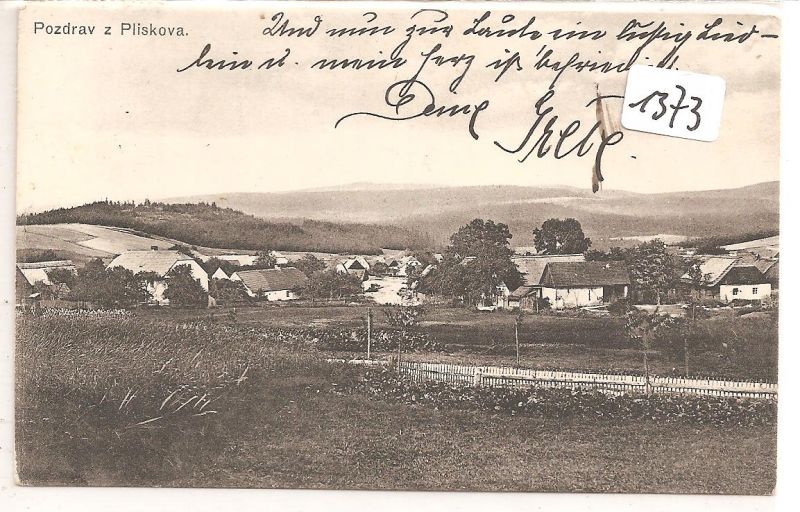 Pozdrav z Pliskova.
Und nun zur Laute ein lustig Lied-
lein u. mein Herz ist befriedigt.
Deine Grete.
1373